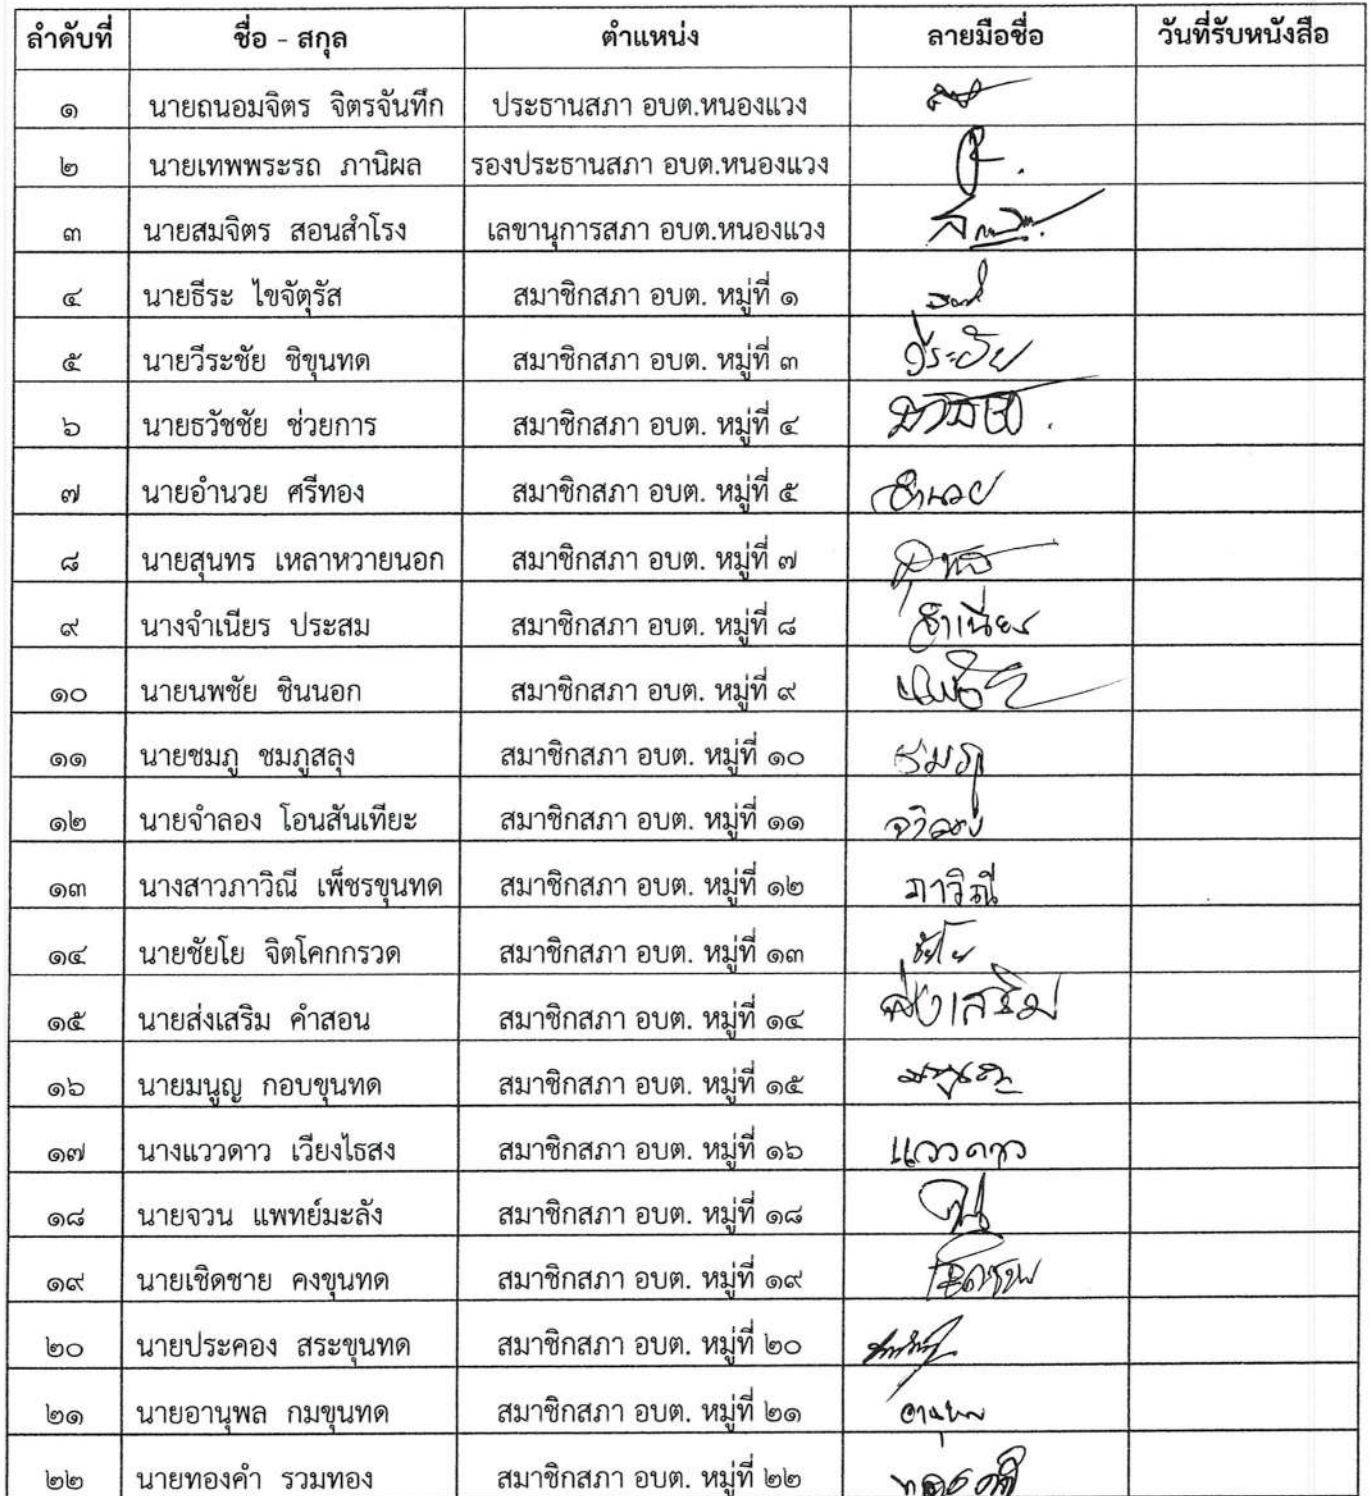 ลำดับที่ ชื่อ - สกุล ตำแหน่ง ลายมือชื่อ วันที่รับหนังสือ
๑ นายถนอมจิตร จิตรจันทึก ประธานสภา อบต.หนองแวง
๒ นายเทพพระรถ ภานิผล รองประธานสภา อบต.หนองแวง
๓ นายสมจิตร สอนสำโรง เลขานุการสภา อบต.หนองแวง
๔ นายธีระ ไขจัตุรัส สมาชิกสภา อบต. หมู่ที่ ๑
๕ นายวีระชัย ชิขุนทด สมาชิกสภา อบต. หมู่ที่ ๓ วีระชัย
๖ นายธวัชชัย ช่วยการ สมาชิกสภา อบต. หมู่ที่ ๔
๗ นายอำนวย ศรีทอง สมาชิกสภา อบต. หมู่ที่ ๕ อำนวย
๘ นายสุนทร เหลาหวายนอก สมาชิกสภา อบต. หมู่ที่ ๗
๙ นางจำเนียร ประสม สมาชิกสภา อบต. หมู่ที่ ๘ จำเนียร
๑๐ นายนพชัย ชินนอก สมาชิกสภา อบต. หมู่ที่ ๙
๑๑ นายชมภู ชมภูสลุง สมาชิกสภา อบต. หมู่ที่ ๑๐ ชมภู
๑๒ นายจำลอง โอนสันเทียะ สมาชิกสภา อบต. หมู่ที่ ๑๑ จำลอง
๑๓ นางสาวภาวิณี เพ็ชรขุนทด สมาชิกสภา อบต. หมู่ที่ ๑๒ ภาวิณี
๑๔ นายชัยโย จิตโคกกรวด สมาชิกสภา อบต. หมู่ที่ ๑๓ ชัยโย
๑๕ นายส่งเสริม คำสอน สมาชิกสภา อบต. หมู่ที่ ๑๔ ส่งเสริม
๑๖ นายมนูญ กอบขุนทด สมาชิกสภา อบต. หมู่ที่ ๑๕
๑๗ นางแววดาว เวียงไธสง สมาชิกสภา อบต. หมู่ที่ ๑๖ แววดาว
๑๘ นายจวน แพทย์มะลัง สมาชิกสภา อบต. หมู่ที่ ๑๘
๑๙ นายเชิดชาย คงขุนทด สมาชิกสภา อบต. หมู่ที่ ๑๙
๒๐ นายประคอง สระขุนทด สมาชิกสภา อบต. หมู่ที่ ๒๐
๒๑ นายอานุพล กมขุนทด สมาชิกสภา อบต. หมู่ที่ ๒๑ อานุพล
๒๒ นายทองคำ รวมทอง สมาชิกสภา อบต. หมู่ที่ ๒๒